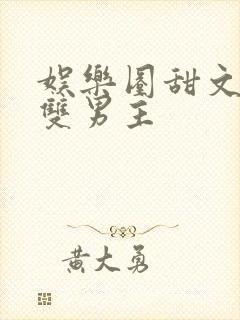 娛樂圈甜文
雙男主
黃大勇